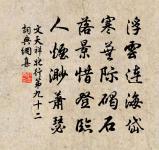 浮雲連海岱
寒蕪際碣石
落景惜登臨
人煙渺蕭瑟
文天祥北行第九十二
詞典網集